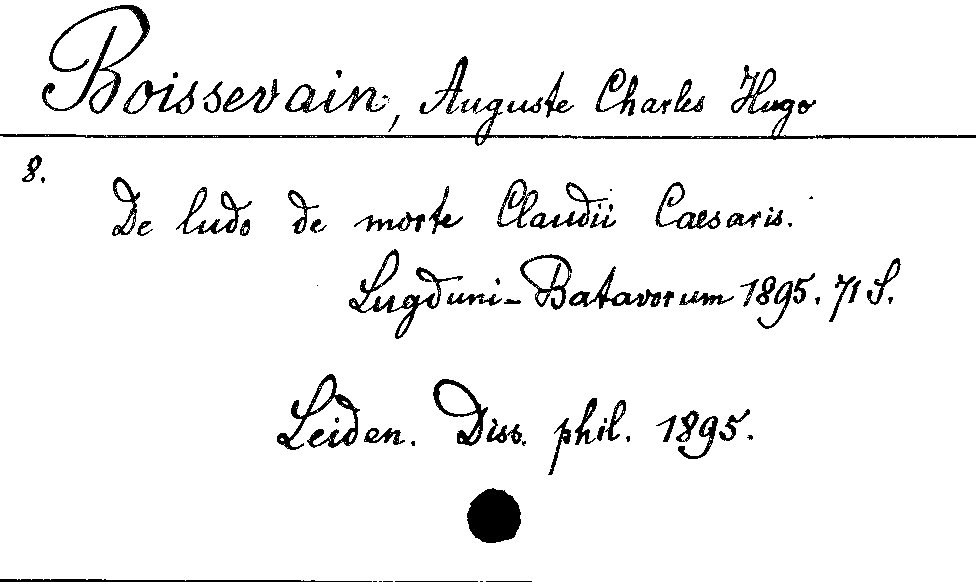 Boissevain, Auguste Charles Hugo
8.
De ludo de morte Claudii Caesaris.
Lugduni-Batavorum 1895. 71 S.
Leiden. Diss. phil. 1895.